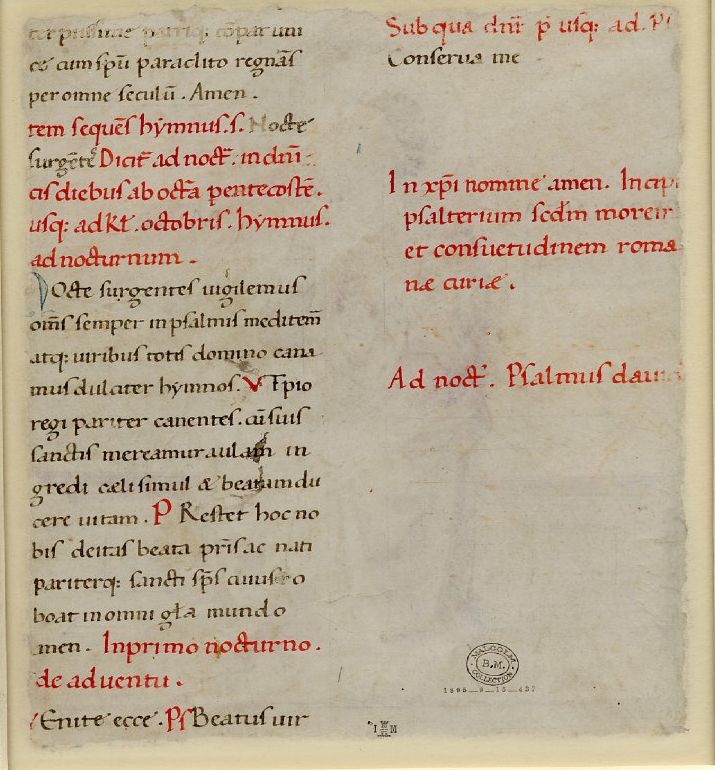 ce cum spu paraclito regnas
per omne seculū . Amen .
tem sequēs hymnus . s . Nocte
surgēte Dicit ad noct . in dm̄
cis diebus ab octa pentecoste .
usq: ad kl . octobris . hymnus .
ad nocturnum .
Nocte surgentes uigilemus
om̄s semper in psalmis meditem
atq: uiribus totis domino cana
mus dulciter hymnos . V T pio
regi pariter canentes . cū suis
sanctis mereamur aulam in
gredi cæli simul & beatam du
cere uitam . P REstet hoc no
bis deitas beata pr̄is ac nati
pariterq: sancti sp̄s cuius
boat in omni gl̄a mundo
men . In primo nocturno .
de aduentu .
Enite ecce . Ps Beatus uir
Sub qua dn̄r p̄ usq: ad . Ps
Conserua me
In xp̄i nomine amen . Incipi
psalterium scd̄m morem
et consuetudinem roma
næ curiæ .
Ad noct . Psalmus daui
MALCOLM
B.M.
COLLECTION
1895-9-15-437
I M